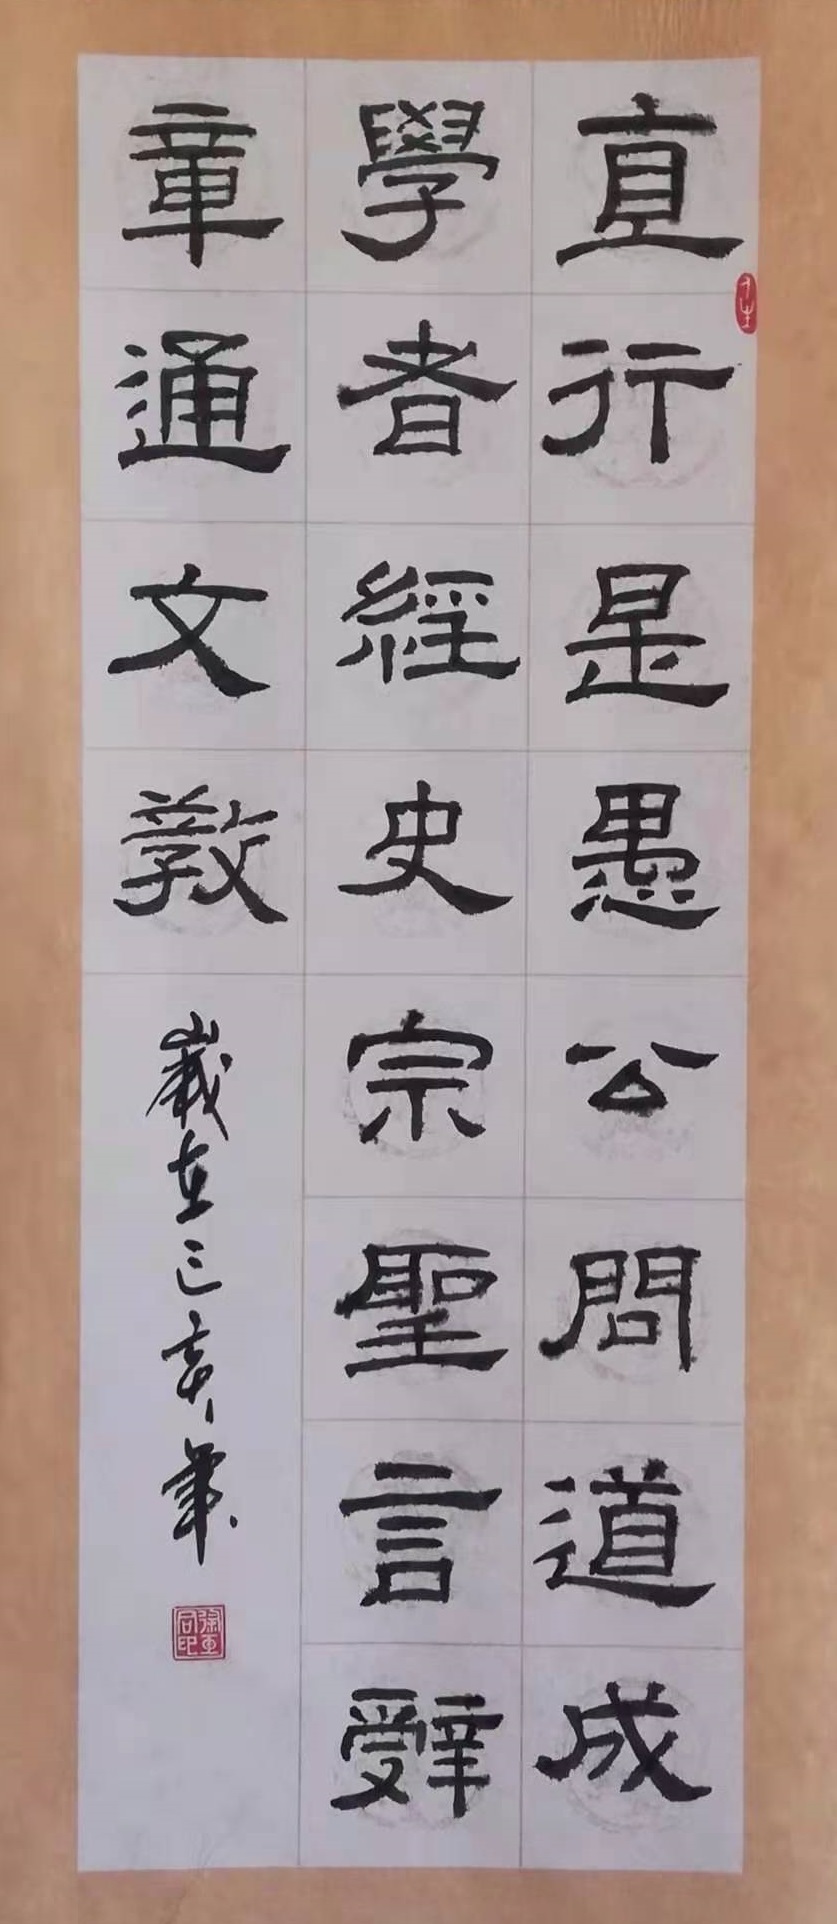 直行是愚公問道成
學者經史宗聖言辭
章通文教
歲在己亥